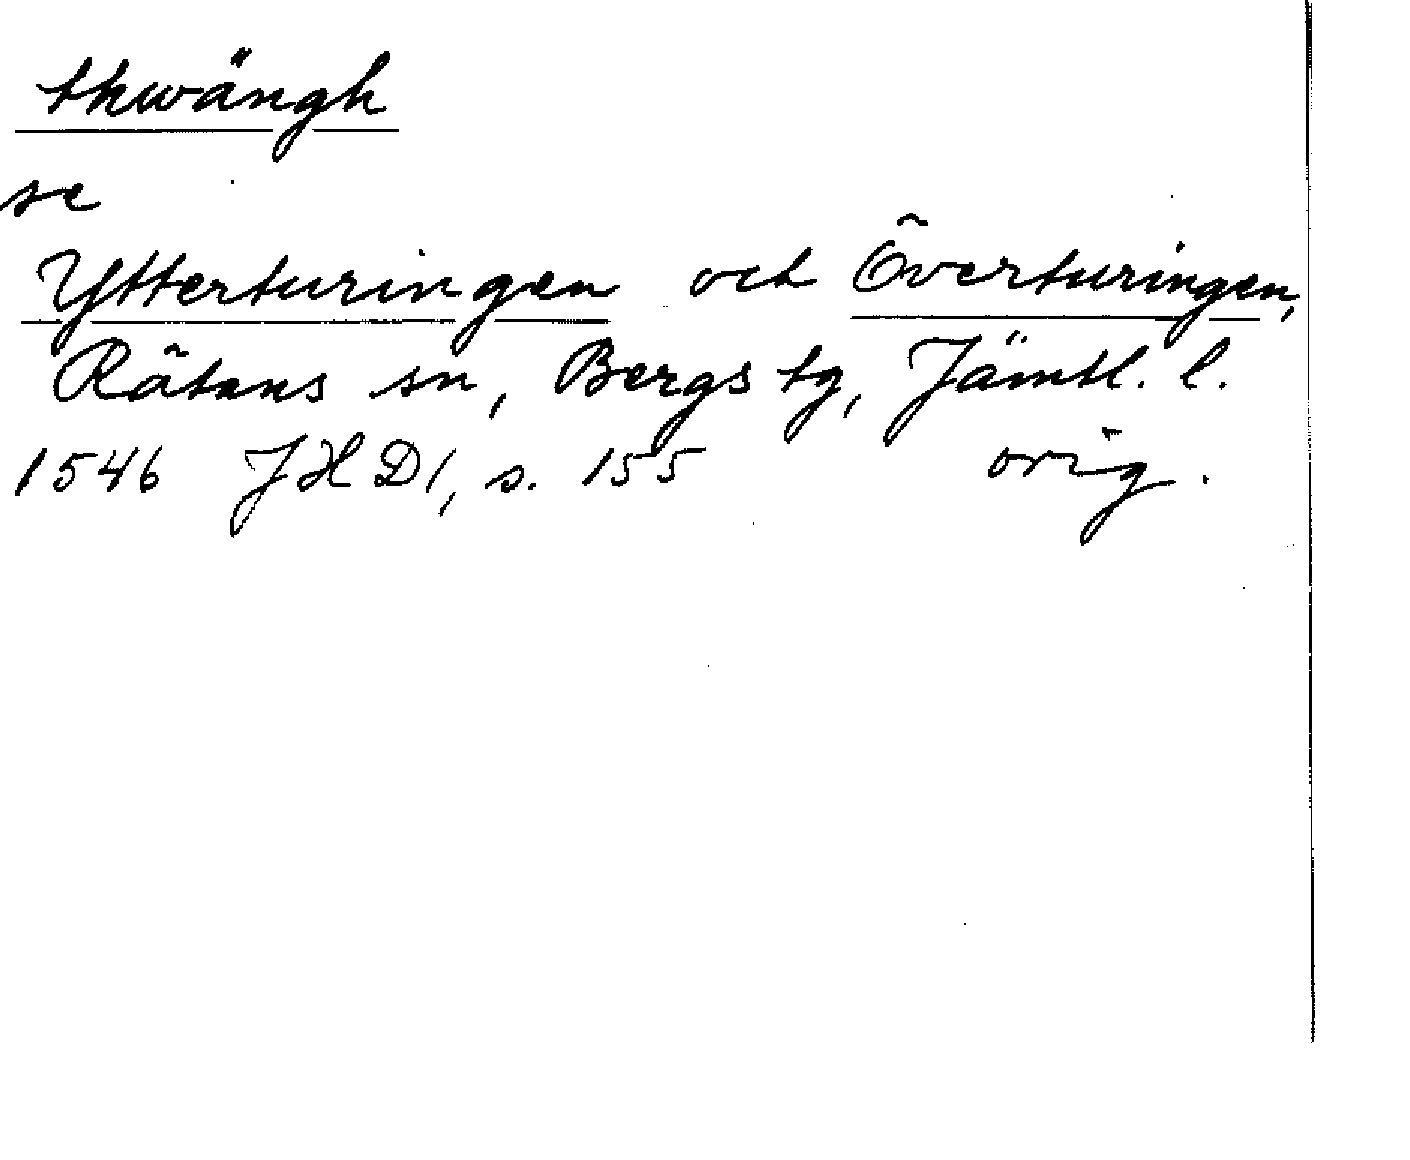 thwängh
se
Ytterturingen och Överturingen,
Råtans sn, Bergs tg, Jämtl. l.
1546 JHD 1, s. 155 orig.